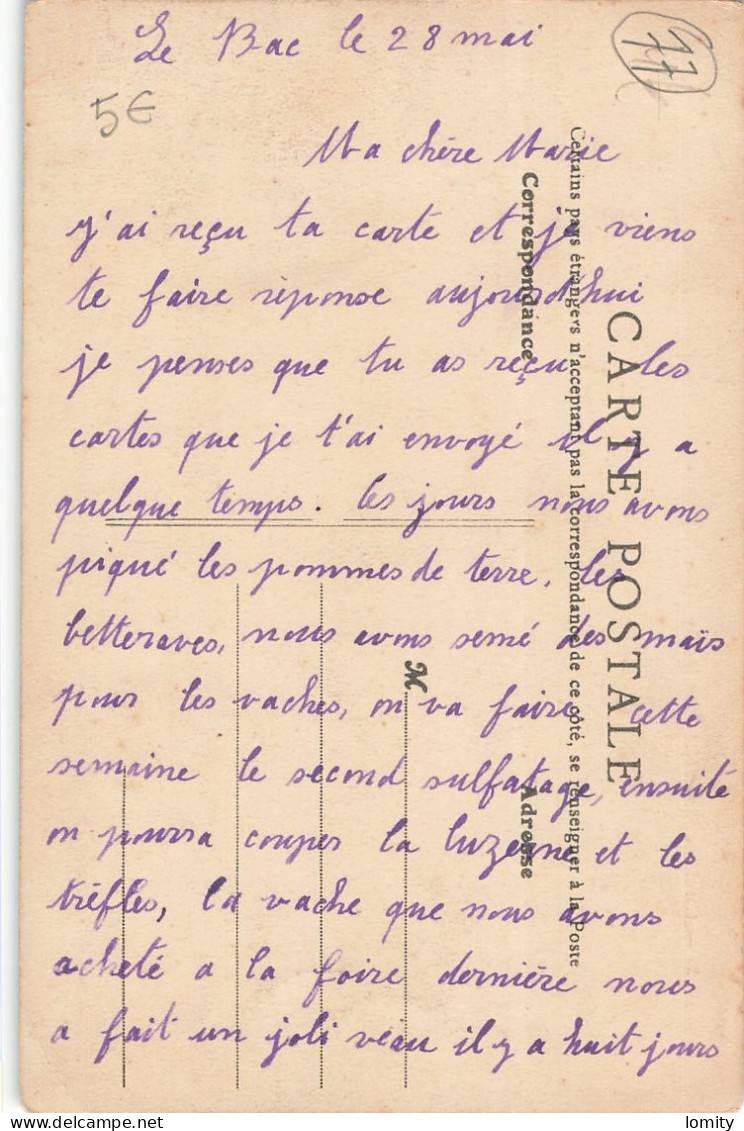 Le Bac le 28 mai
77
5€
Ma chère Marie
j'ai reçu ta carte et je viens
te faire réponse aujourd'hui
je penses que tu as reçu les
cartes que je t'ai envoyé il y a
quelque temps. les jours nous avons
piqué les pommes de terre, les
betteraves, nous avons semé des maïs
pour les vaches, on va faire cette
semaine le second sulfatage, ensuite
on pourra couper la luzerne et les
trèfles, la vache que nous avons
acheté a la foire dernière nous
a fait un joli veau il y a huit jours
CARTE POSTALE
Certains pays étrangers n'acceptant pas la correspondance de ce côté, se renseigner à la Poste
Correspondance
Adresse
M
lomity